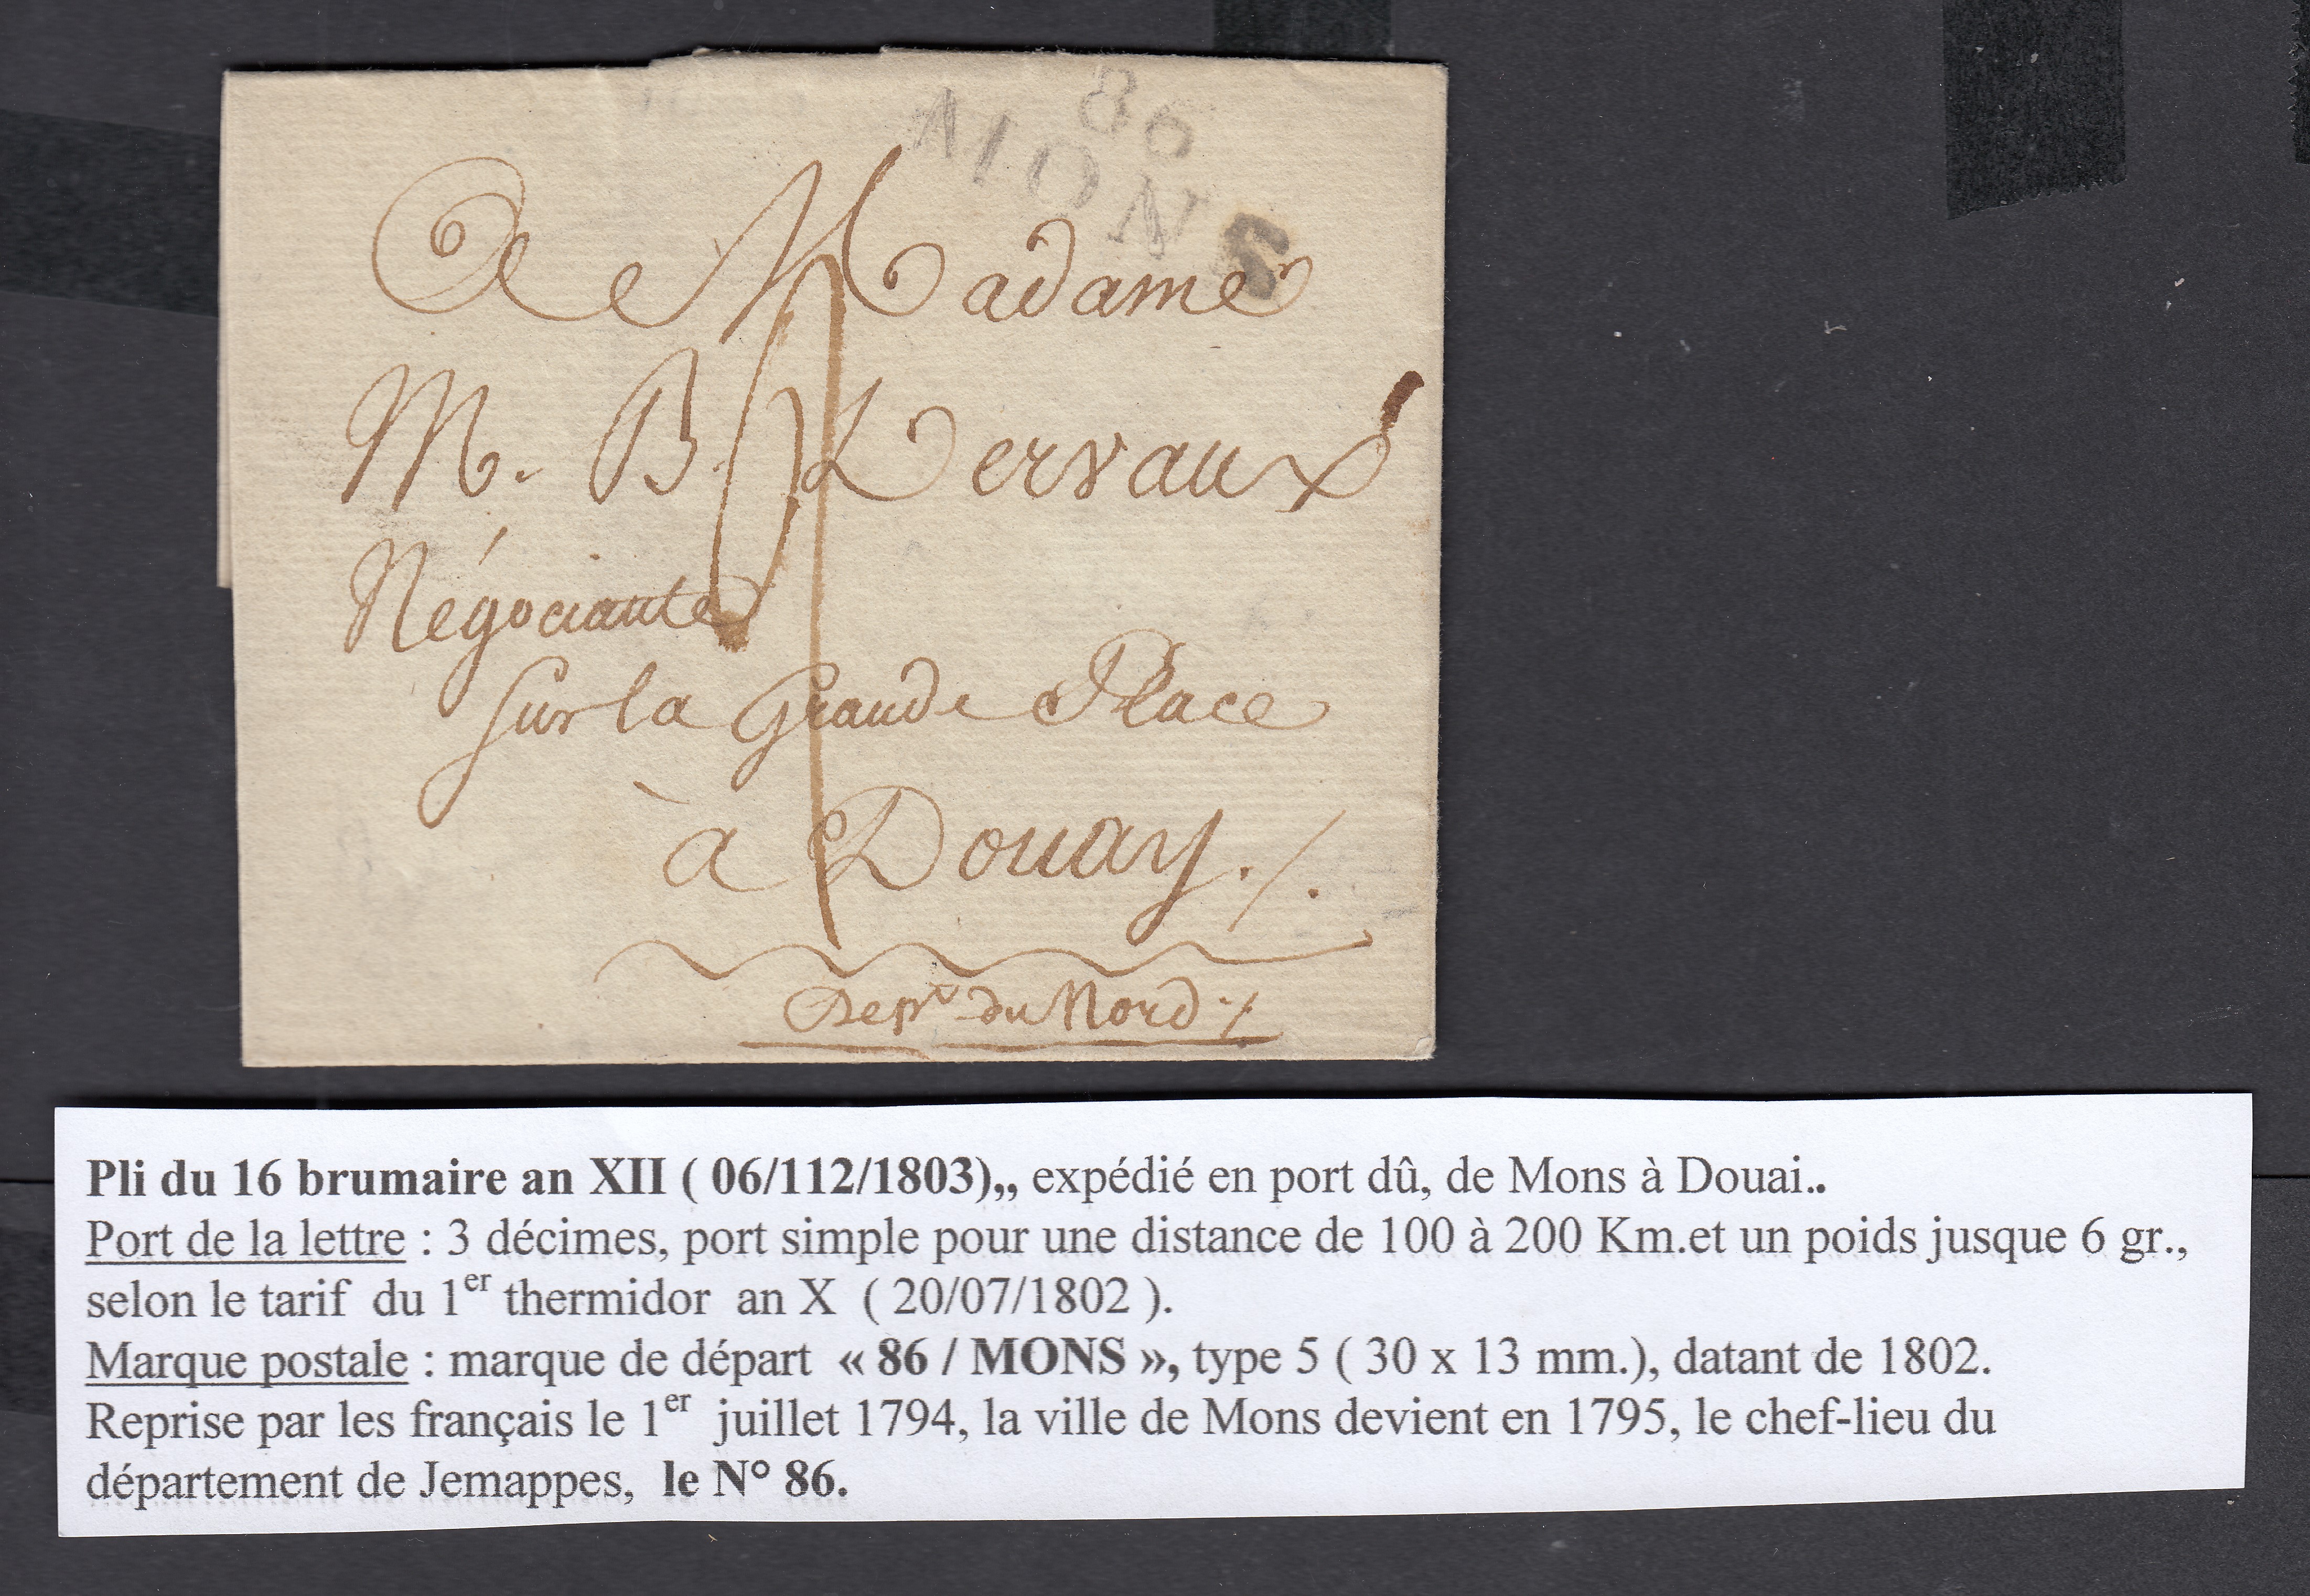 86
MONS
A Madame
M. B. Dervaux
Négociante
Sur la Grande Place
à Douay ./.
Depr du Nord ./.
Pli du 16 brumaire an XII ( 06/112/1803),, expédié en port dû, de Mons à Douai..
Port de la lettre : 3 décimes, port simple pour une distance de 100 à 200 Km.et un poids jusque 6 gr.,
selon le tarif du 1er thermidor an X ( 20/07/1802 ).
Marque postale : marque de départ « 86 / MONS », type 5 ( 30 x 13 mm.), datant de 1802.
Reprise par les français le 1er juillet 1794, la ville de Mons devient en 1795, le chef-lieu du
département de Jemappes, le N° 86.